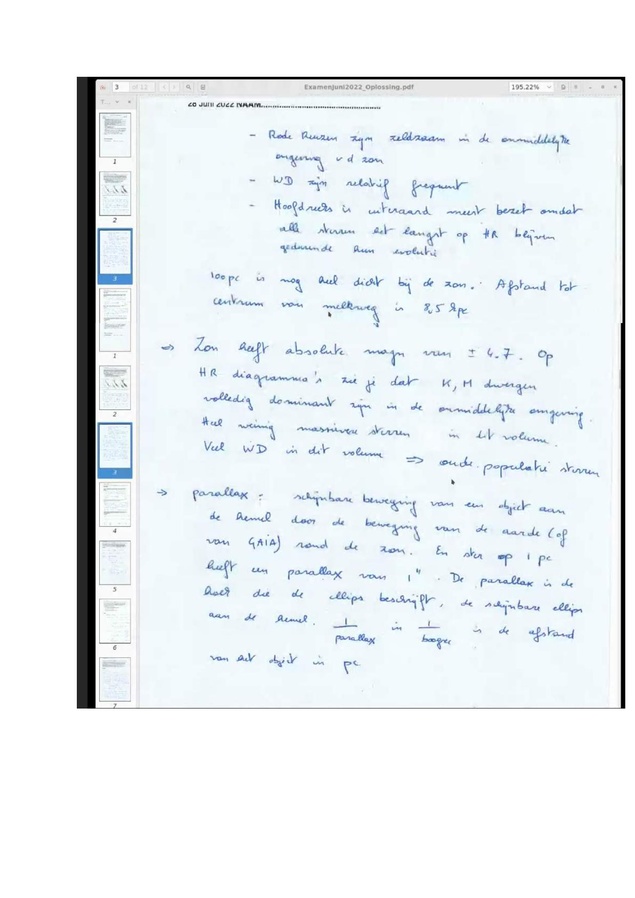 3 of 12
Examenjuni2022_Oplossing.pdf
195.22%
28 Juni 2022 NAAM
- Rode Reuzen zijn zeldzaam in de onmiddelijke
omgeving v d zon
- WD zijn relatief frequent
- Hoofdreeks is uiteraard meest bezet omdat
alle sterren het langst op HR blijven
gedurende hun evolutie
100 pc is nog heel dicht bij de zon. Afstand tot
centrum van melkweg is 8,5 kpc
=> Zon heeft absolute magn van ± 4.7. Op
HR diagramma's zie je dat K, M dwergen
volledig dominant zijn in de onmiddelijke omgeving.
Heel weinig massieve sterren in dit volume.
Veel WD in dit volume => oude populatie sterren
-> parallax: schijnbare beweging van een object aan
de hemel door de beweging van de aarde (of
van GAIA) rond de zon. Een ster op 1 pc
heeft een parallax van 1". De parallax is de
hoek die de ellips beschrijft, de schijnbare ellips
aan de hemel. 1/parallax in 1/boogsec is de afstand
van het object in pc
1
2
3
1
2
3
4
5
6
7